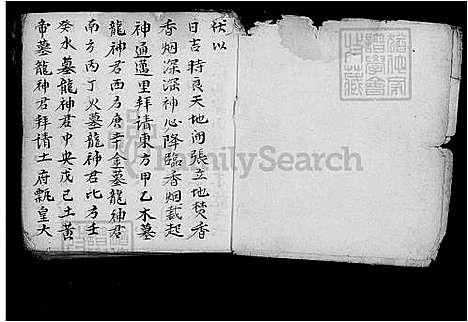 伏以
日吉時良天地開張立地焚香
香烟深深神心降臨香烟載起
神通邁里拜請東方甲乙木墓
龍神君西方庚辛金墓龍神君
南方丙丁火墓龍神君比方壬
癸水墓龍神君中央戊己土黃
帝墓龍神君拜請土府瓢皇大
FamilySearch